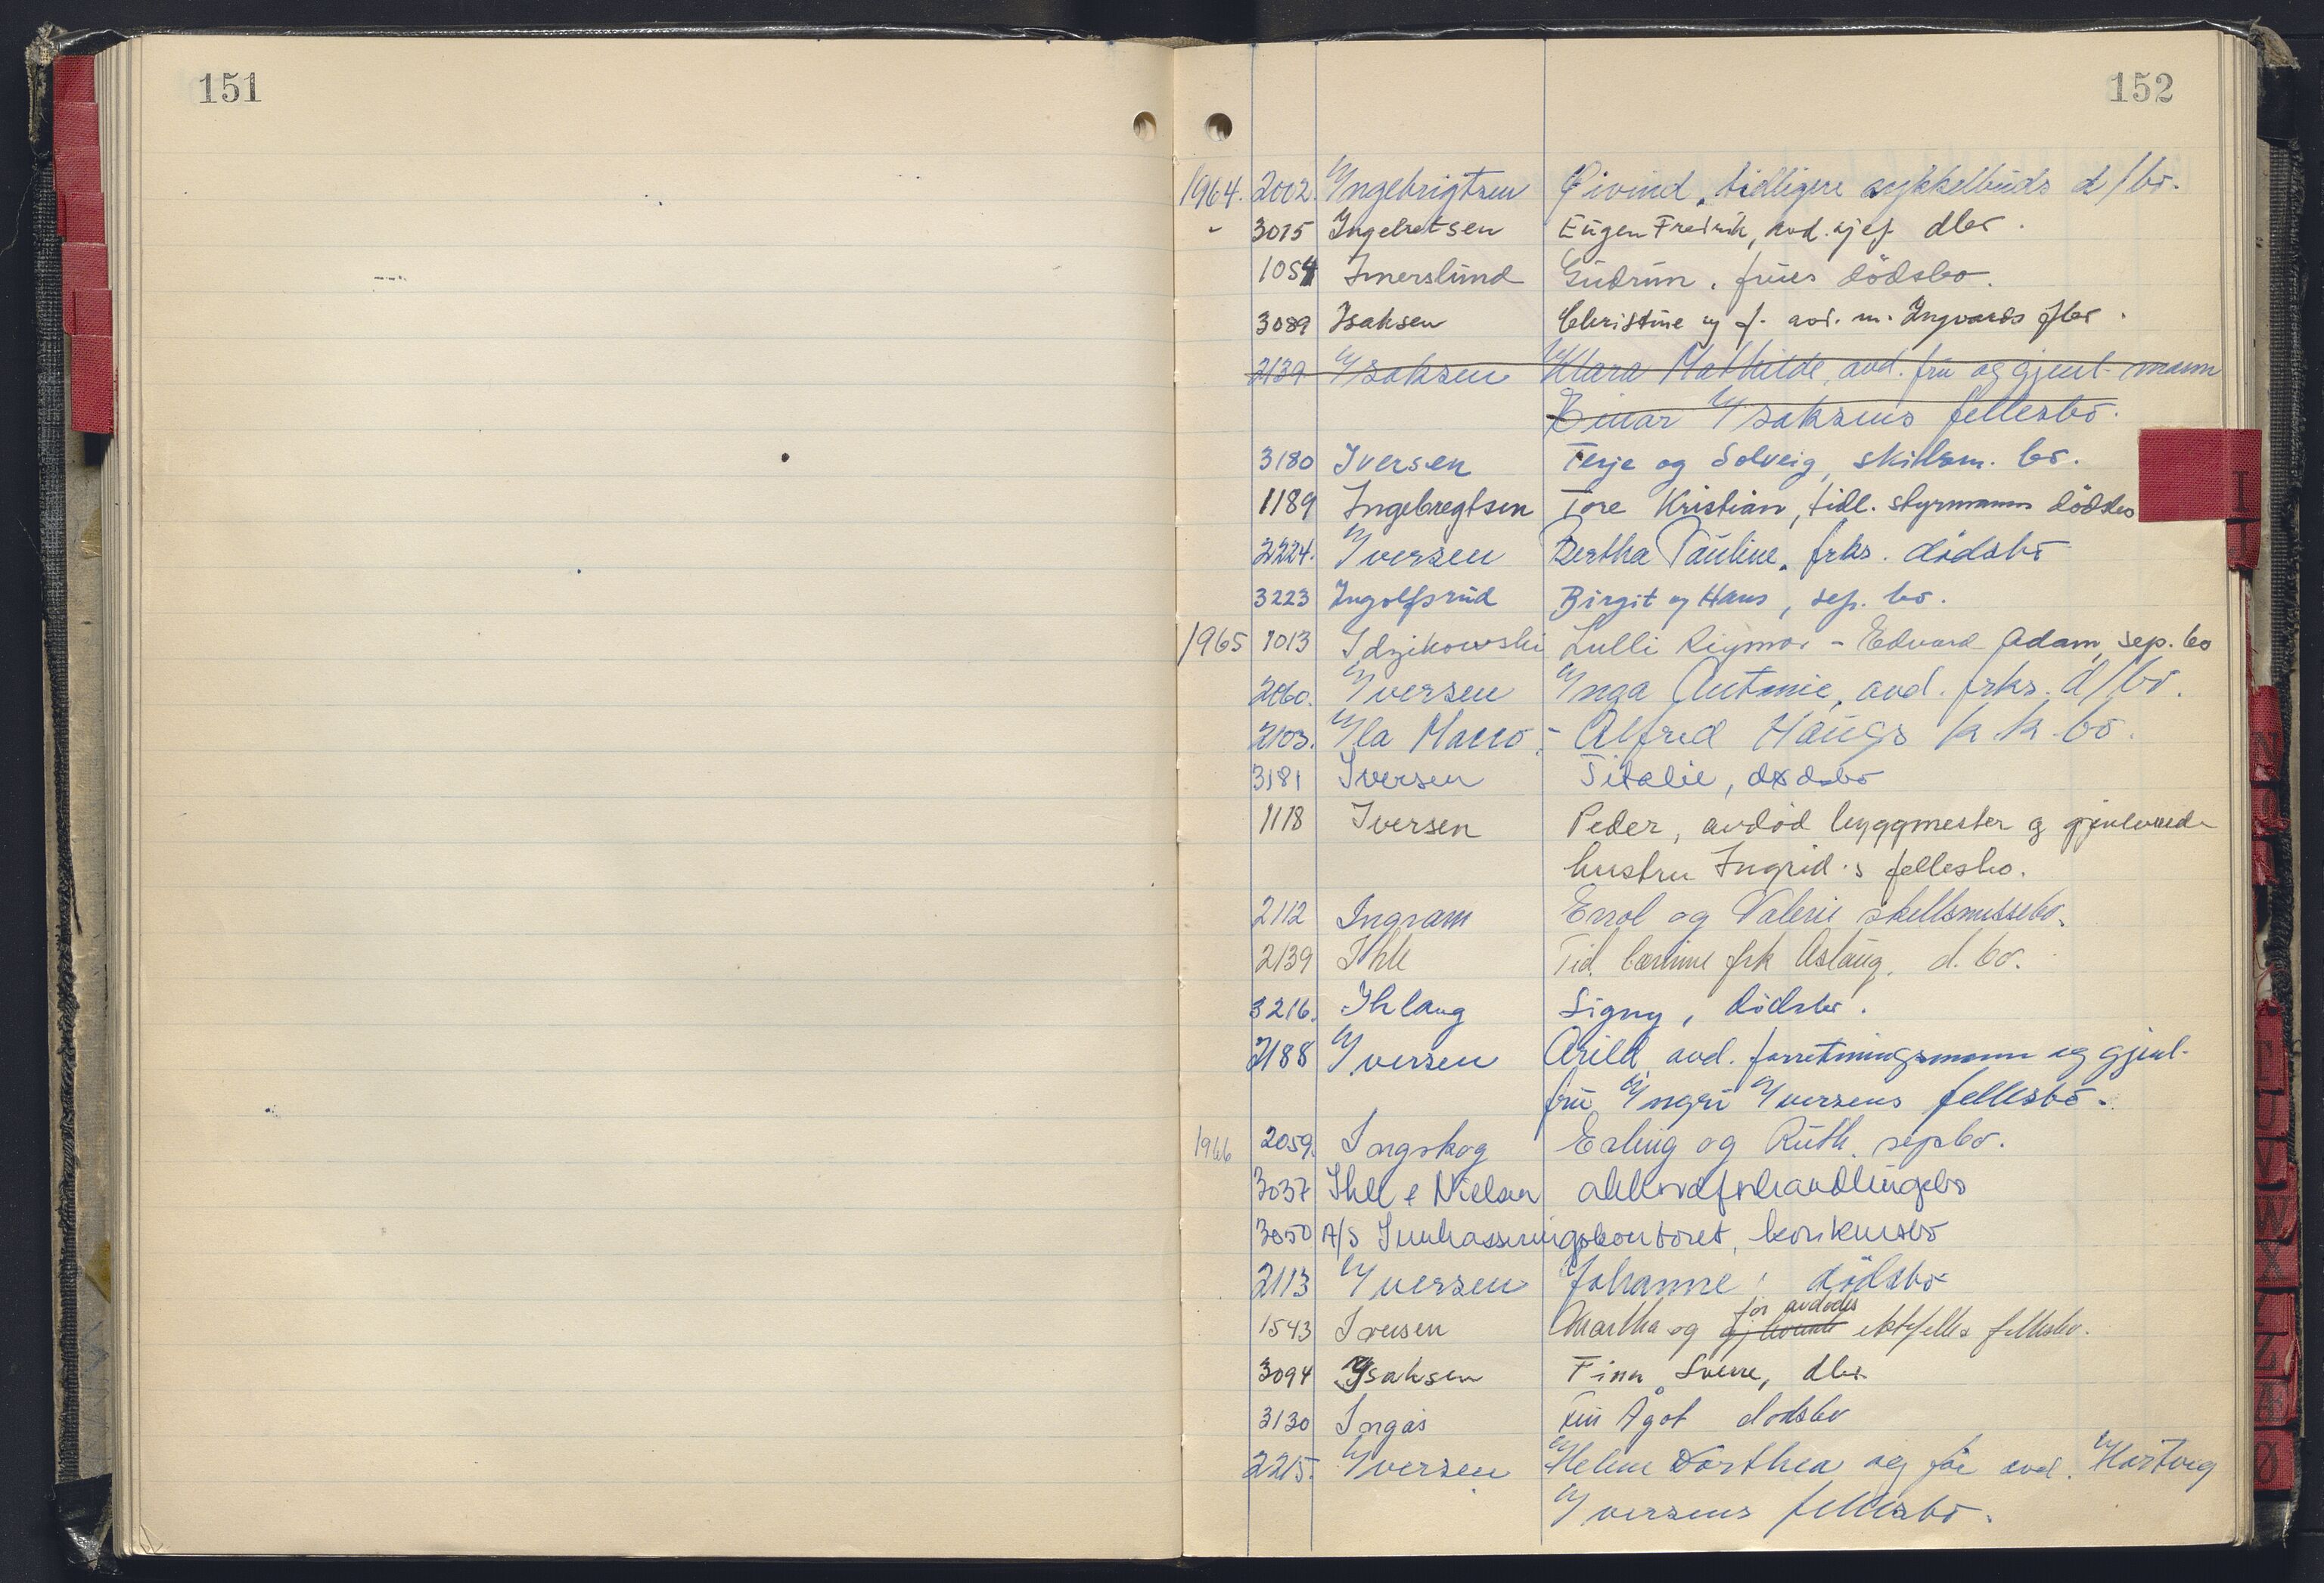 151
152
1964. 2002. Ingebrigtsen Øivind, tidligere sykkelbuds d/bo.
- 3015 Ingebretsen Eugen Fredrik, avd. sjef dbo.
1054 Imerslund Gudrun, frues dödsbo.
3089 Isaksen Christine og f. avd. m. Ingvards fbo.
2139 Isaksen Klara Mathilde, avd. fru og gjenl. mann
Einar Isaksens fellesbo.
3180 Iversen Terje og Solveig, skilsm. bo.
1189 Ingebregtsen Tore Kristian, tidl. styrmanns dödsbo
2224. Iversen Bertha Pauline, frks. dödsbo
3223 Ingolfsrud Birgit og Hans, sep. bo.
1965 1013 Idzikowski Lulli Rigmor - Edvard Adam, sep. bo
2060. Iversen Inga Antonie, avd. frks. d/bo.
2103. Ila - Alfred Haugs k.k.bo.
3181 Iversen Titalie, dødsbo
1118 Iversen Peder, avdöd byggmester og gjenlevende
hustru Ingrid's fellesbo.
2112 Ingram Errol og Valerie skillsmissebo.
2139 Ihle Tid. lærerinne frk Aslaug, d. bo.
3216. Ihlang Signy, dödsbo.
2188 Iversen Arild, avd. forretningsmann og gjenl.
fru Ingri Iversens fellesbo.
1966 2059. Ingskog Erling og Ruth, sepbo.
3037 Ihle & Nielsen akkordforhandlingsbo
3050 A/S Innkasseringskontoret, konkursbo
2113 Iversen Johanne, dödsbo
for avdødes
1543 Iversen Martha og gj.levende ektefelles fellesbo.
3094 Isaksen Finn Sverre, dbo
3130 Ingås Fru Ågot dødsbo
2215. Iversen Helene Dorthea og før avd. Hartvig
Iversens fellesbo.
I